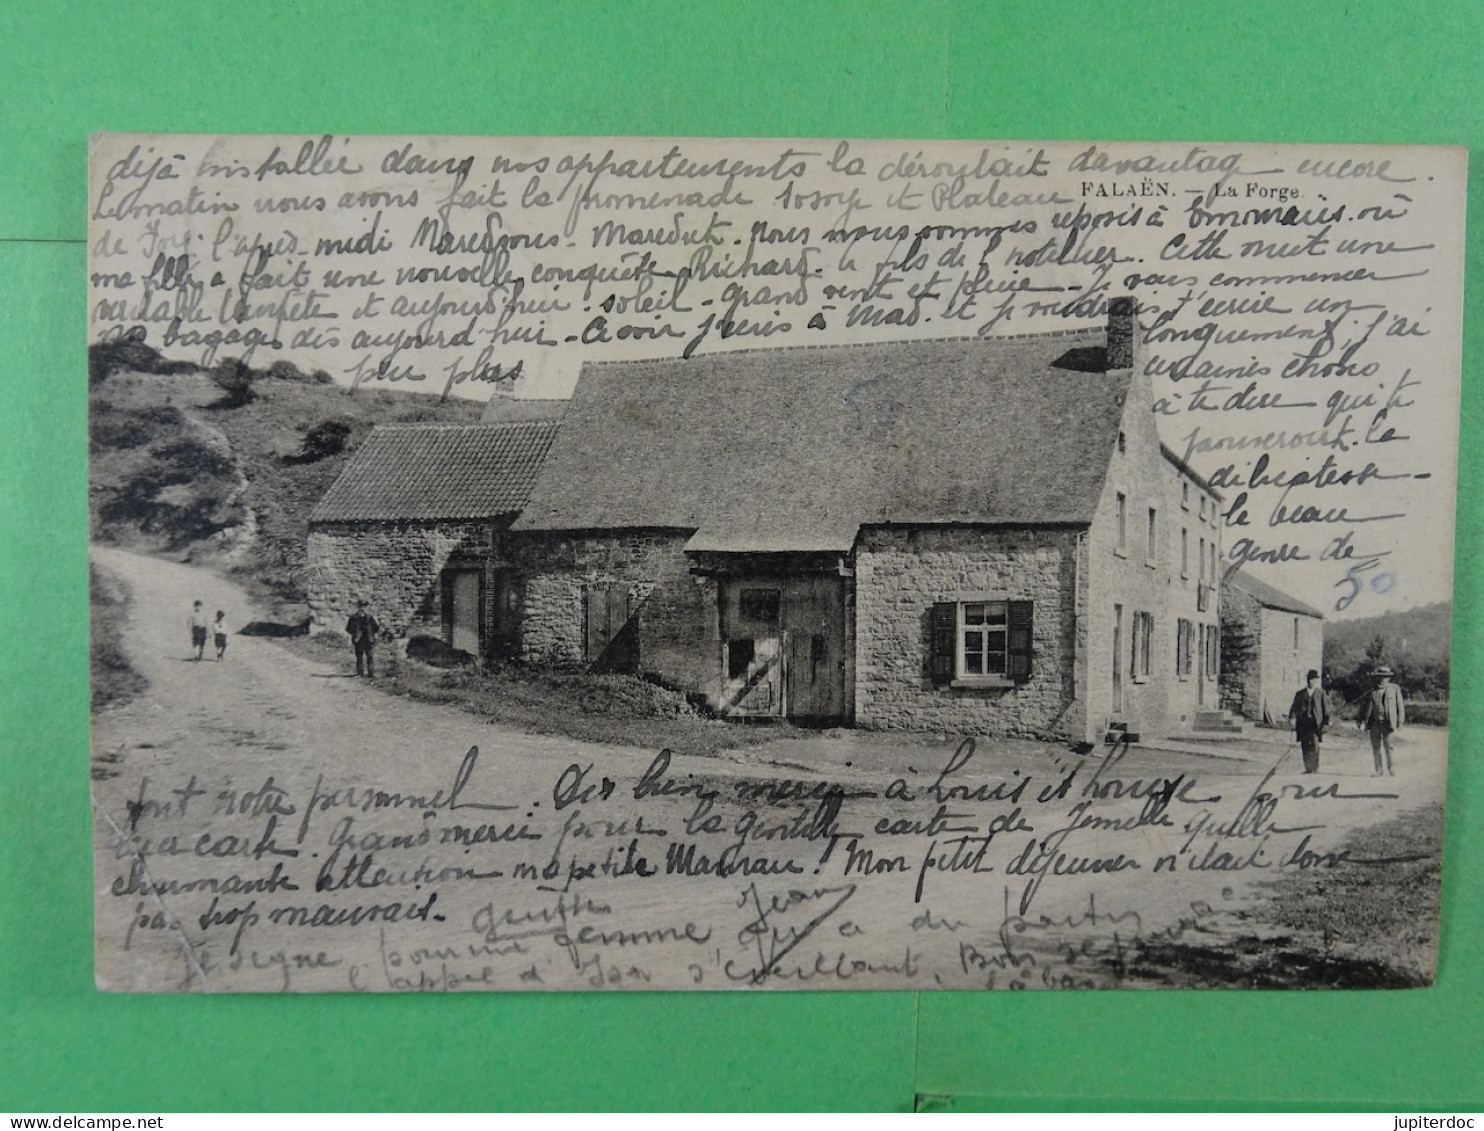 déjà installée dans nos appartements la déroutait davantage encore.
Le matin nous avons fait la promenade Sosoye et Plateau
FALAËN. — La Forge.
de Foy. l'après-midi Maredsous - Maredret. nous nous sommes reposés à Emmaüs où
ma fille a fait une nouvelle conquête Richard. le fils de l'hôtelier. Cette nuit une
véritable tempête et aujourd'hui soleil - grand vent et pluie - Je vais commencer
nos bagages dès aujourd'hui - à et je voudrais t'écrire un
peu plus
longuement, j'ai
certaines choses
à te dire qui te
prouveront. la
le beau
genre de
50
tout notre personnel. Dis bien merci à Louis et Louise pour
leur carte. Grand merci pour la gentille carte de Jemelle quelle
charmante attention ma petite Maman! Mon petit déjeuner n'était donc
pas trop mauvais.
Jean
Je signe pour mi femme qui a du partir
l'appel d' s'éveillant. Bons